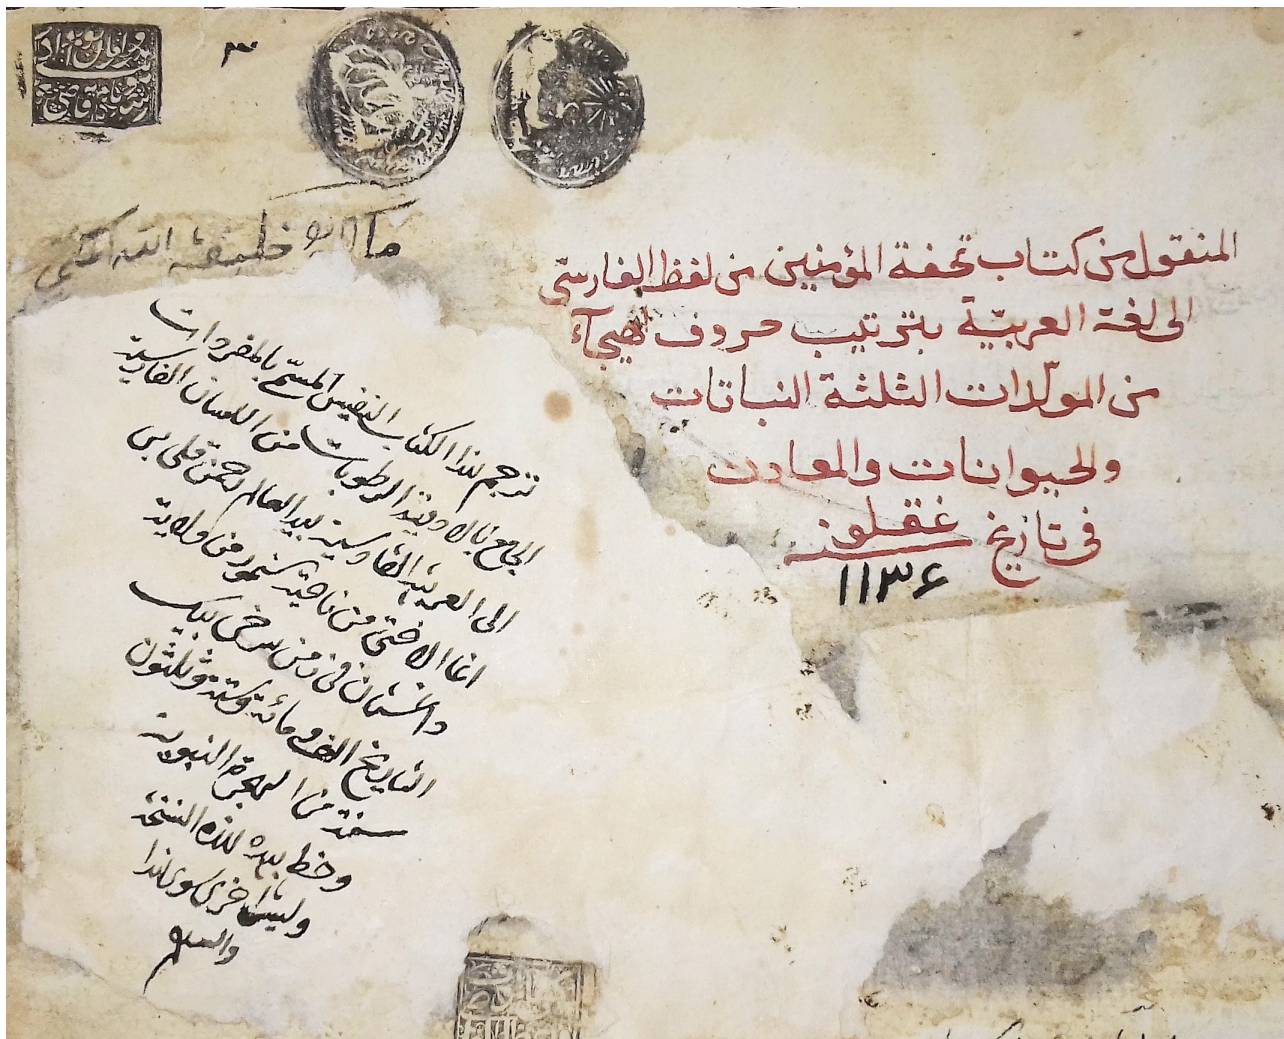 ٣
المنقول من كتاب تحفة المؤمنين من لفظ الفارسى
الى لغة العربيّة بترتيب حروف الهيجآء
من المولّدات الثلثة النباتات
والحيوانات والمعادن
فى تاريخ غقلو
١١٣۶
خليفة الله
ترجم هذا الكتاب النفيس المسمى بالمفردات
الجامع بالادوية الرطوبات من اللسان الفارسية
الى العربية القادسية بيد العالم رحمن قلى بن
اغا الاختى من ناحية كنمود من ولاية
داغستان فى زمن سرخى بيك
التاريخ الف ومائة وستة وثلثون
سنة من الهجرة النبوية
وخط بيده هذه النسخة
وليس اخرى سوى هذا
والسلام